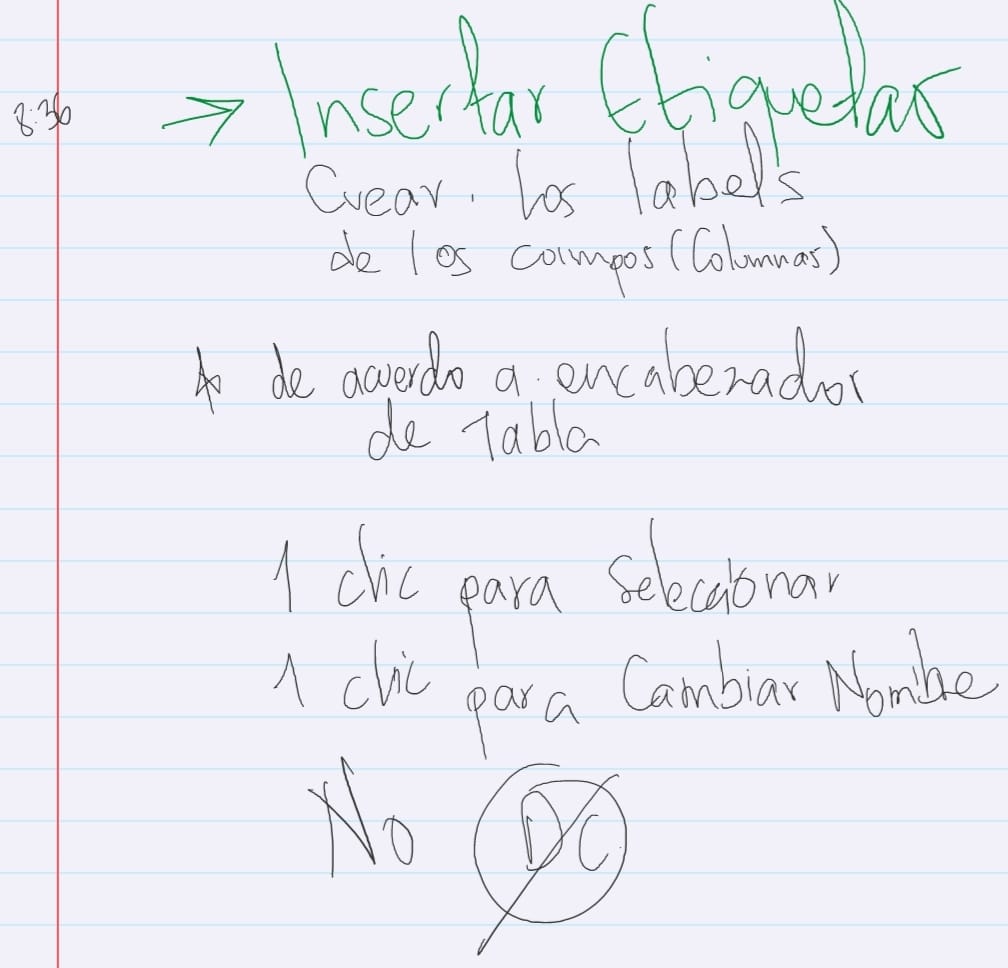 8:36 → Insertar Etiquetas
Crear. los labels
de los campos (Columnas)
* de acuerdo a encabezados
de Tabla
1 clic para Seleccionar
1 clic para Cambiar Nombre
No DC